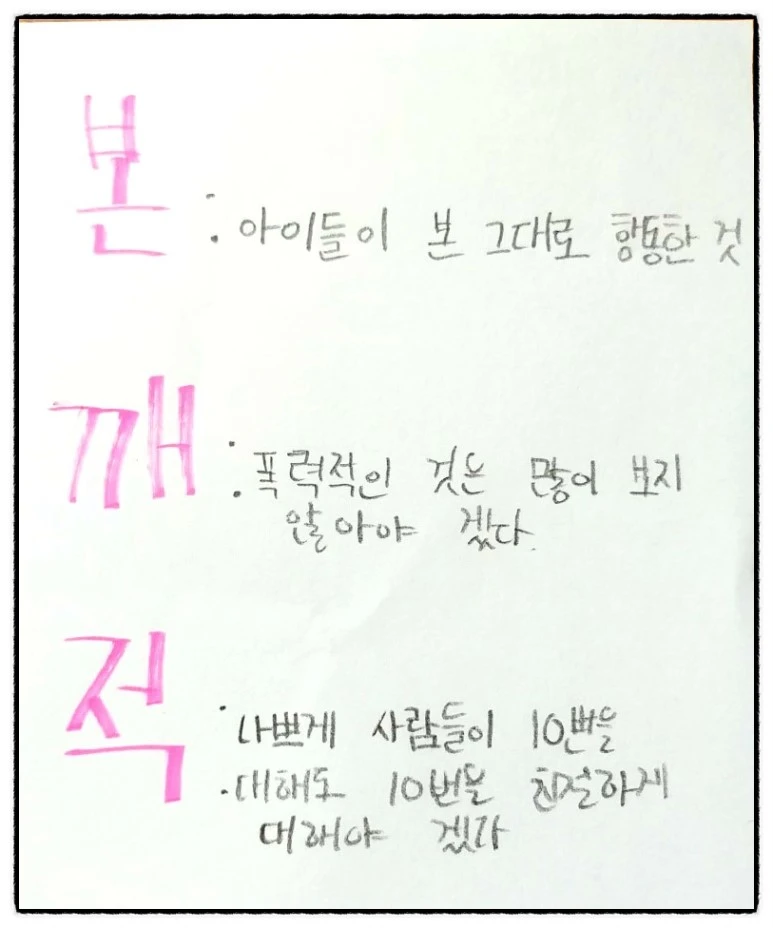 본 : 아이들이 본 그대로 행동한 것
깨 : 폭력적인 것은 많이 보지
않아야 겠다.
적 : 나쁘게 사람들이 10번을
대해도 10번을 친절하게
대해야 겠다